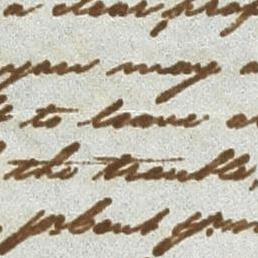 a clear prop
you may a
to leave a
the trouble,
about your